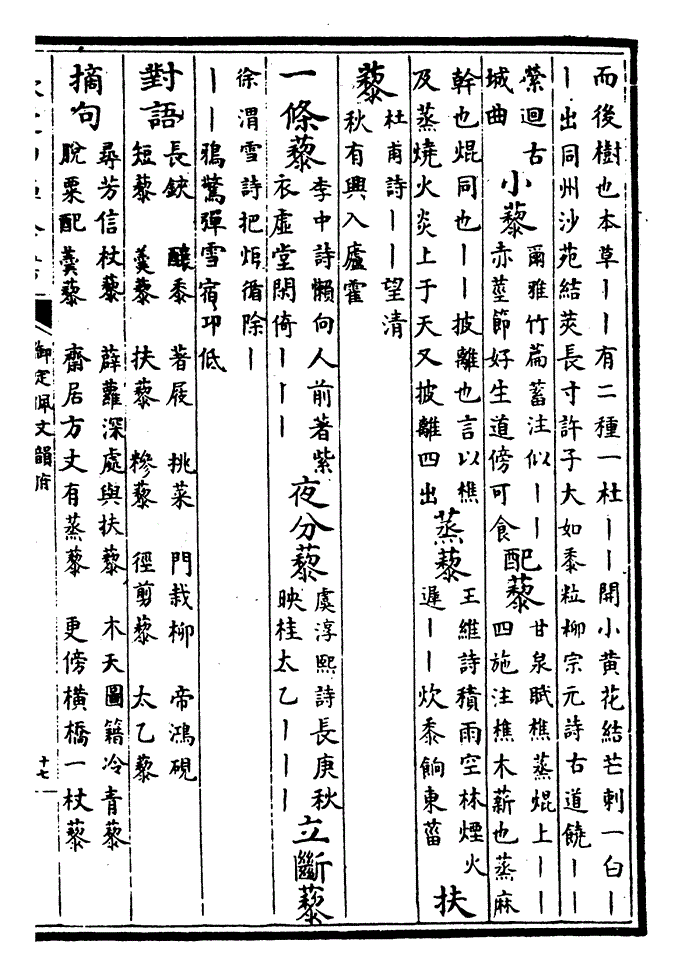 而後樹也本草｜｜有二種一杜｜｜開小黄花結芒刺一白｜
｜出同州沙苑結莢長寸許子大如黍粒柳宗元詩古道饒｜｜
縈迴古
城曲
小藜
爾雅竹萹蓄注似｜｜
赤莖節好生道傍可食
配藜
甘泉賦樵蒸焜上｜｜
四施注樵木薪也蒸麻
幹也焜同也｜｜披離也言以樵
及蒸燒火炎上于天又披離四出
蒸藜
王維詩積雨空林煙火
遲｜｜炊黍餉東菑
扶
藜
杜甫詩｜｜望清
秋有興入廬霍
一條藜
李中詩懶向人前著紫
衣虛堂閑倚｜｜｜
夜分藜
虞淳熙詩長庚秋
映桂太乙｜｜｜
立斷藜
徐渭雪詩把炬循除｜
｜｜鴉驚彈雪宿卭低
對語
長鋏　釀黍　著屐　挑菜　門栽柳　帝鴻硯
短藜　羹藜　扶藜　糝藜　徑剪藜　太乙藜
摘句
尋芳信杖藜　薜蘿深處與扶藜　木天圖籍冷青藜
脫粟配羹藜　齋居方丈有蒸藜　更傍橫橋一杖藜
御定佩文韻府
十七